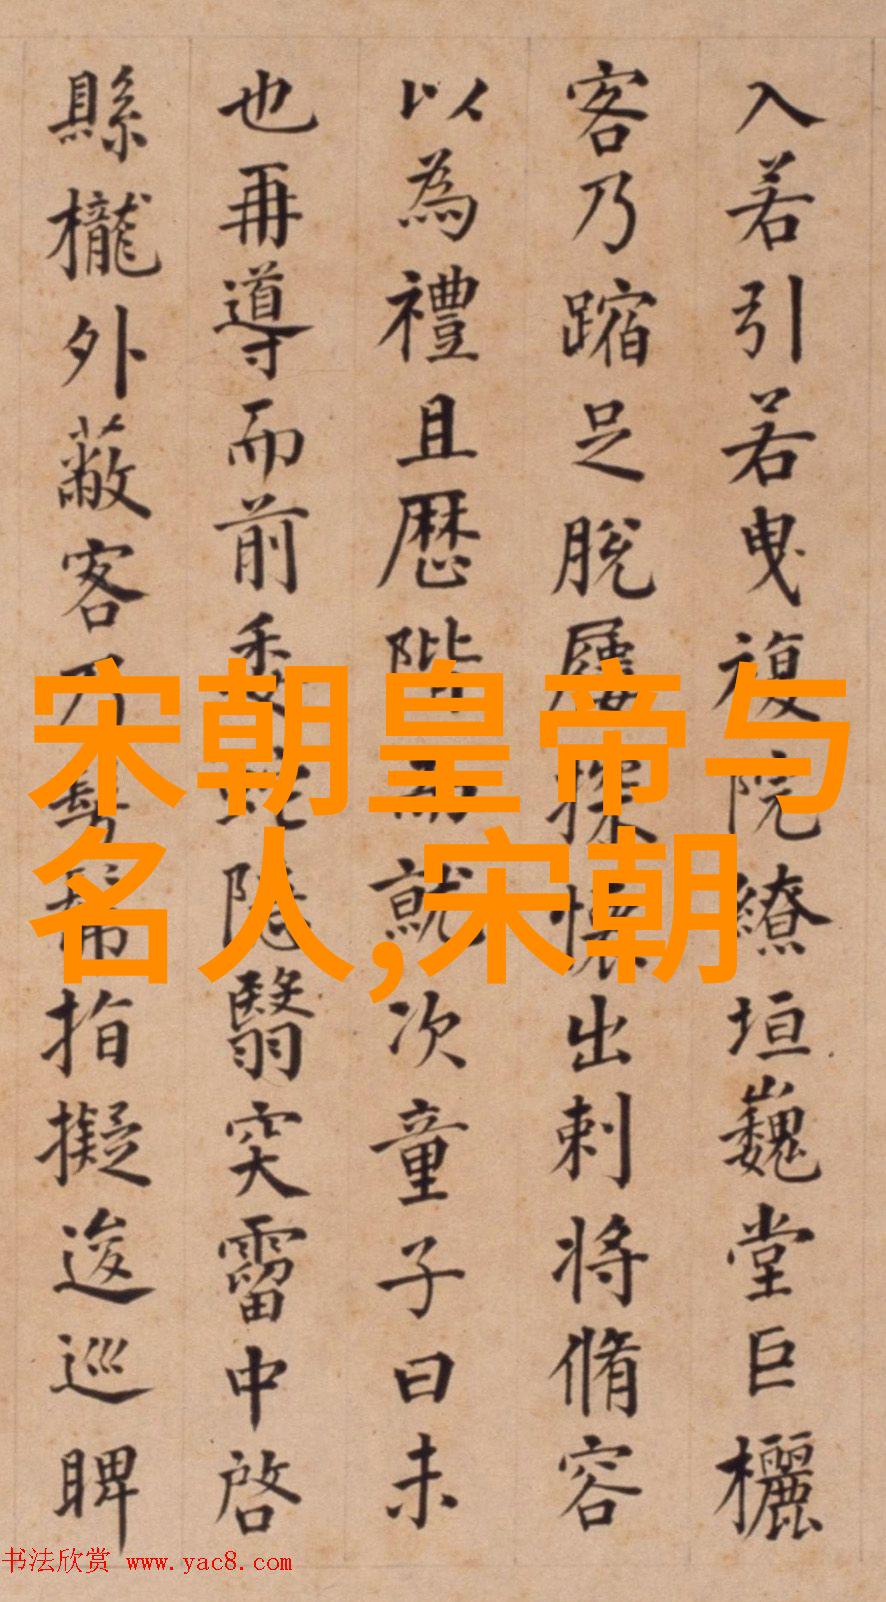 入若引若曳複院繚垣巍堂巨欐
客乃蹜足脫屨探懷出刺將脩容
以為禮且歷階而就次童子曰未
也再導而前委蛇隱翳突霤中啓
縣櫳外蔽客乃指擬逡巡睥
宋朝皇帝与
名人,宋朝
书法欣赏 www.yac8.com